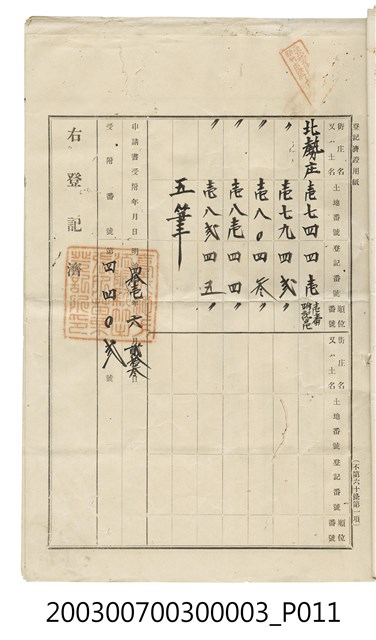 登記濟證用紙
街庄名
又ハ土名
土地番號
登記番號
順位番號
街庄名
又ハ土名
土地番號
登記番號
順位番號
北勢庄 壱七四 四 壱
〃 壱七九 四 貳 〃
〃 壱八〇 四 叁 〃
〃 壱八壱 四 四 〃
〃 壱八貳 四 五 〃
五筆
申請書受附年月日 明治四拾壱年六月貳拾叁日
受附番號 第四四〇貳號
右登記濟
(不第六十條第一項)
200300700300003_P011